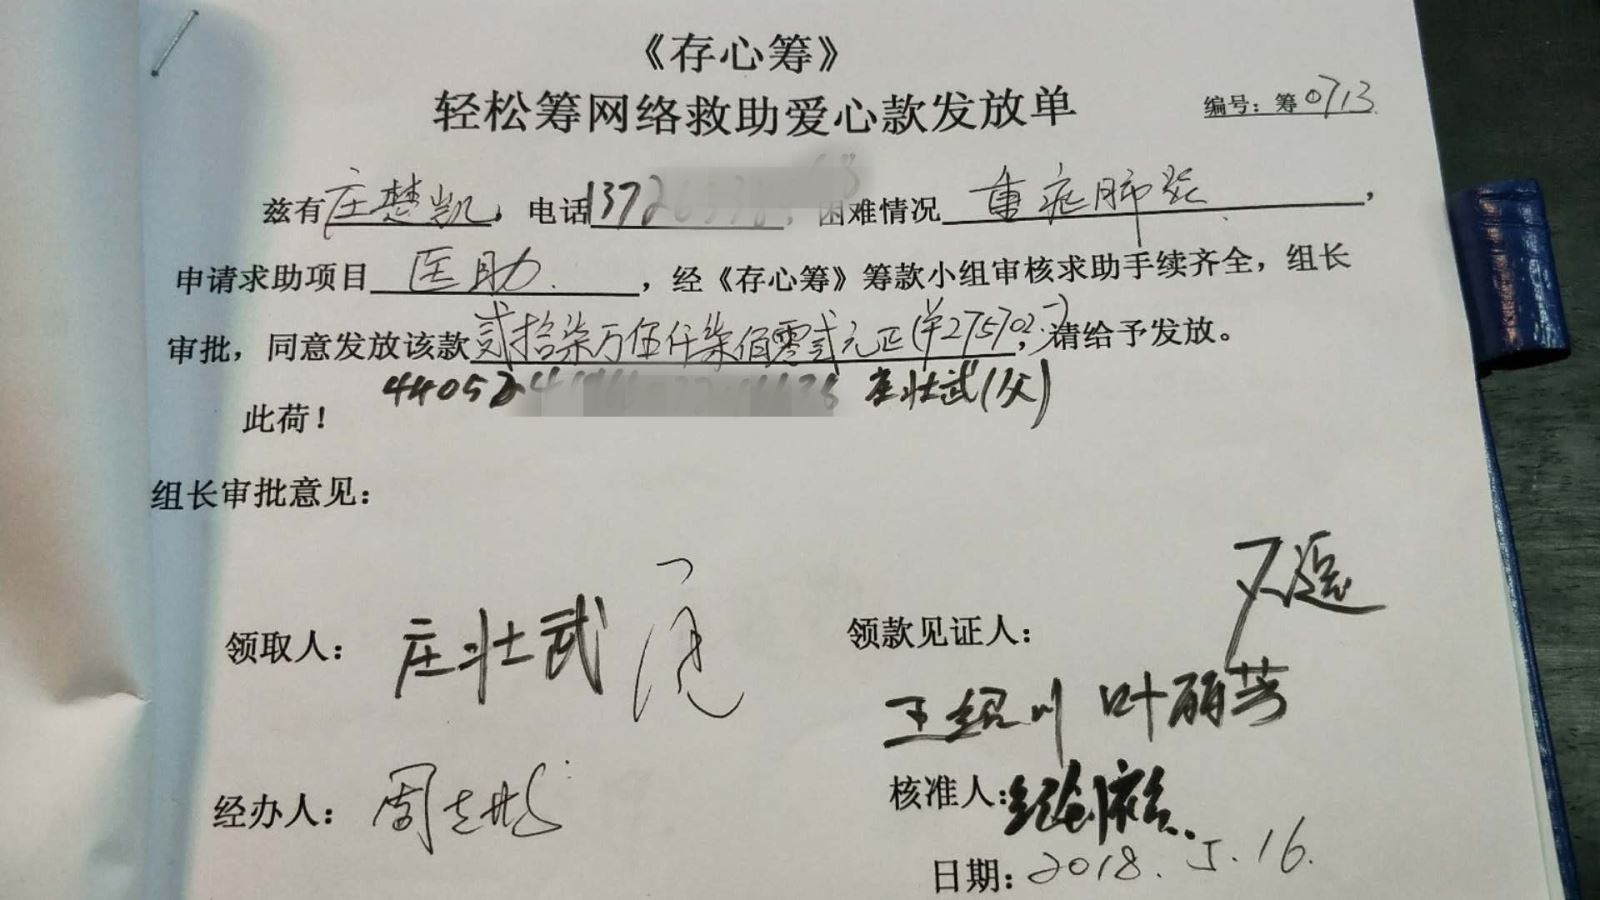 《存心筹》
轻松筹网络救助爱心款发放单
编号：筹0713
兹有庄楚凯，电话13726，困难情况重症肺炎，
申请求助项目医助，经《存心筹》筹款小组审核求助手续齐全，组长
审批，同意发放该款贰拾柒万伍仟柒佰零贰元正(￥275702.-)，请给予发放。
44052 庄壮武(父)
此荷！
组长审批意见：
领取人：庄壮武
领款见证人：
王绍川 叶丽芳
经办人：周
核准人：
日期：2018.5.16.